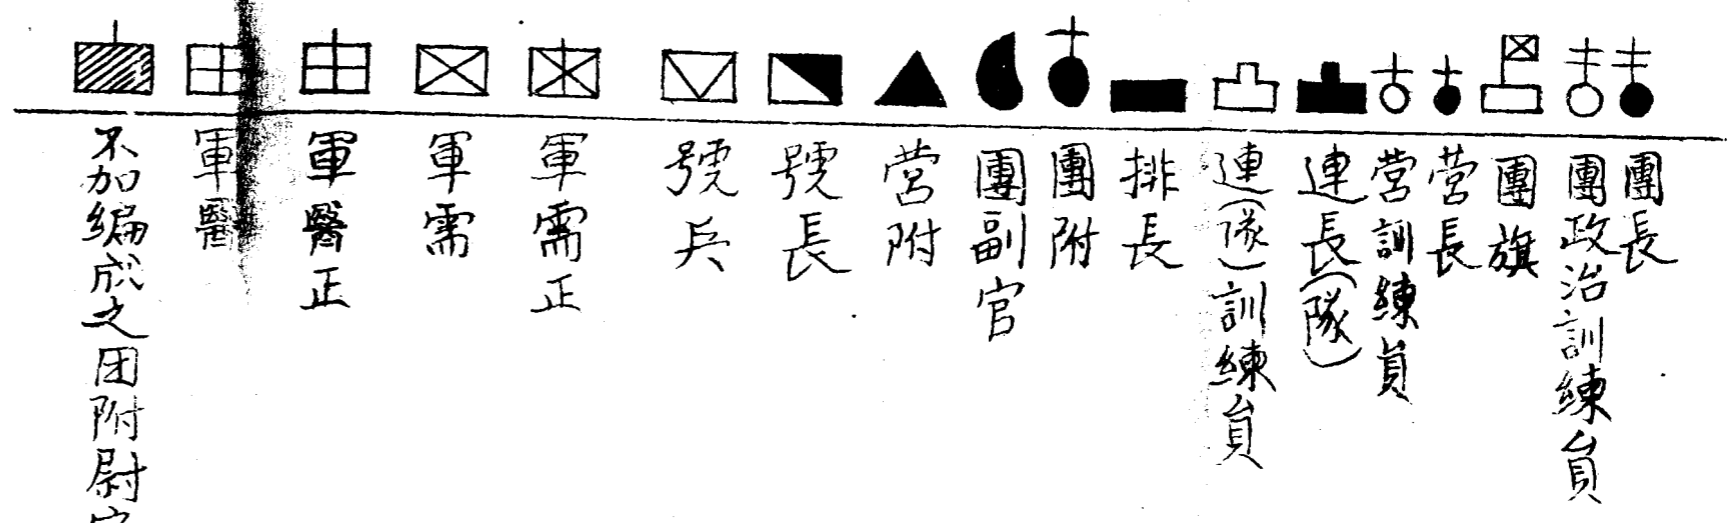 團長
團政治訓練員
團旗
营長
营訓練員
連長(隊)
連(隊)訓練員
排長
團附
團副官
营附
號長
號兵
軍需正
軍需
軍醫正
軍醫
不加編成之团附尉官